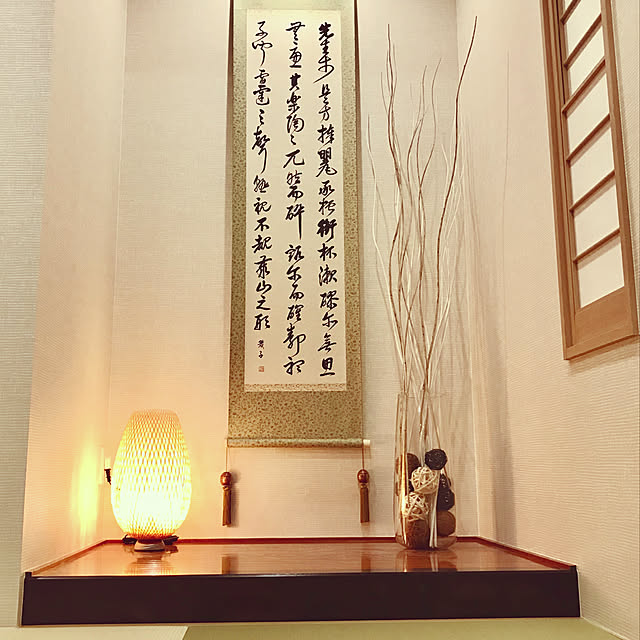 先生於是方捧甖承槽銜杯漱醪無思
無慮其樂陶々兀然而醉豁尓而醒静聴
不聞雷霆之聲熟視不覩泰山之形